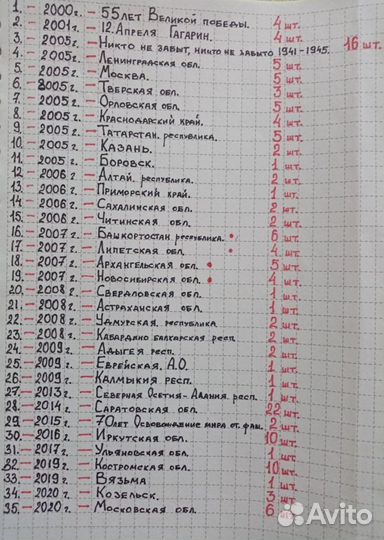 1. – 2000г. – 55 лет Великой победы. 4 шт.
2. – 2001г. – 12. Апреля Гагарин. 4 шт.
3. – 2005г. – Никто не забыт, ничто не забыто 1941-1945. 16 шт.
4. – 2005г. – Ленинградская обл. 5 шт.
5. – 2005г. – Москва. 5 шт.
6. – 2005г. – Тверская обл. 3 шт.
7. – 2005г. – Орловская обл. 5 шт.
8. – 2005г. – Краснодарский край. 4 шт.
9. – 2005г. – Татарстан. республика. 5 шт.
10. – 2005г. – Казань. 2 шт.
11. – 2005г. – Боровск. 1 шт.
12. – 2006г – Алтай. республика. 2 шт.
13. – 2006г. – Приморский край. 1 шт.
14. – 2006г. – Сахалинская обл. 2 шт.
15. – 2006г. – Читинская обл. 2 шт.
16. – 2007г. – Башкортостан республика. 6 шт.
17. – 2007г. – Липетская обл. 4 шт.
18. – 2007г. – Архангельская обл. 5 шт.
19. – 2007г. – Новосибирская обл. 4 шт.
20. – 2008г. – Свердловская обл. 1 шт.
21. – 2008г. – Астраханская обл. 1 шт.
22. – 2008г. – Удмурская. республика 2 шт.
23. – 2008г. – Кабардино Балкарская респ 2 шт.
24. – 2009г. – Адыгея респ. 2 шт.
25. – 2009г. – Еврейская. А.О. 1 шт.
26. – 2009г. – Калмыкия респ. 1 шт.
27. – 2013г. – Северная Осетия-Алания. респ. 1 шт.
28. – 2014г. – Саратовская обл. 22 шт.
29. – 2015г. – 70лет Освобождение мира от фаш. 2 шт.
30. – 2016г. – Иркутская обл. 10 шт.
31. – 2017г. – Ульяновская обл. 1 шт.
32. – 2019г. – Костромская обл. 10 шт.
33. – 2019г. – Вязьма 1 шт.
34. – 2020г. – Козельск. 3 шт.
35. – 2020г. – Московская обл. 6 шт.
Avito